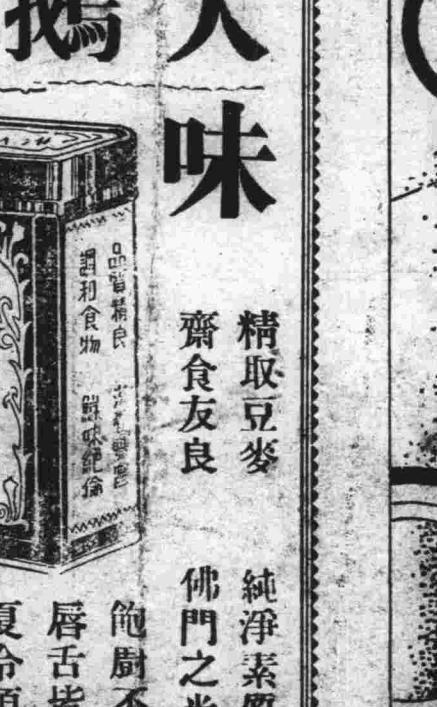 味
精取豆麥 純淨素
齋食友良 佛門之
品質精良
調和食物 鮮味絕倫
飽廚不
唇舌皆
夏令